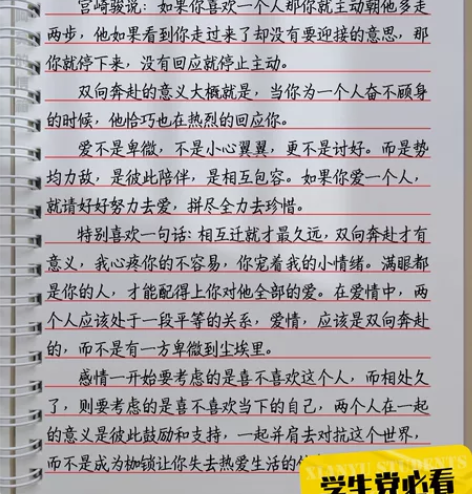 宫崎骏说：如果你喜欢一个人那你就主动朝他多走
两步，他如果看到你走过来了却没有要迎接的意思，那
你就停下来，没有回应就停止主动。
双向奔赴的意义大概就是，当你为一个人奋不顾身
的时候，他恰巧也在热烈的回应你。
爱不是卑微，不是小心翼翼，更不是讨好。而是势
均力敌，是彼此陪伴，是相互包容。如果你爱一个人，
就请好好努力去爱，拼尽全力去珍惜。
特别喜欢一句话：相互迁就才最久远，双向奔赴才有
意义，我心疼你的不容易，你宠着我的小情绪。满眼都
是你的人，才能配得上你对他全部的爱。在爱情中，两
个人应该处于一段平等的关系，爱情，应该是双向奔赴
的，而不是有一方卑微到尘埃里。
感情一开始要考虑的是喜不喜欢这个人，而相处久
了，则要考虑的是喜不喜欢当下的自己，两个人在一起
的意义是彼此鼓励和支持，一起并肩去对抗这个世界，
而不是成为枷锁让你失去热爱生活的
XIANYU STUDENTS
学生党必看